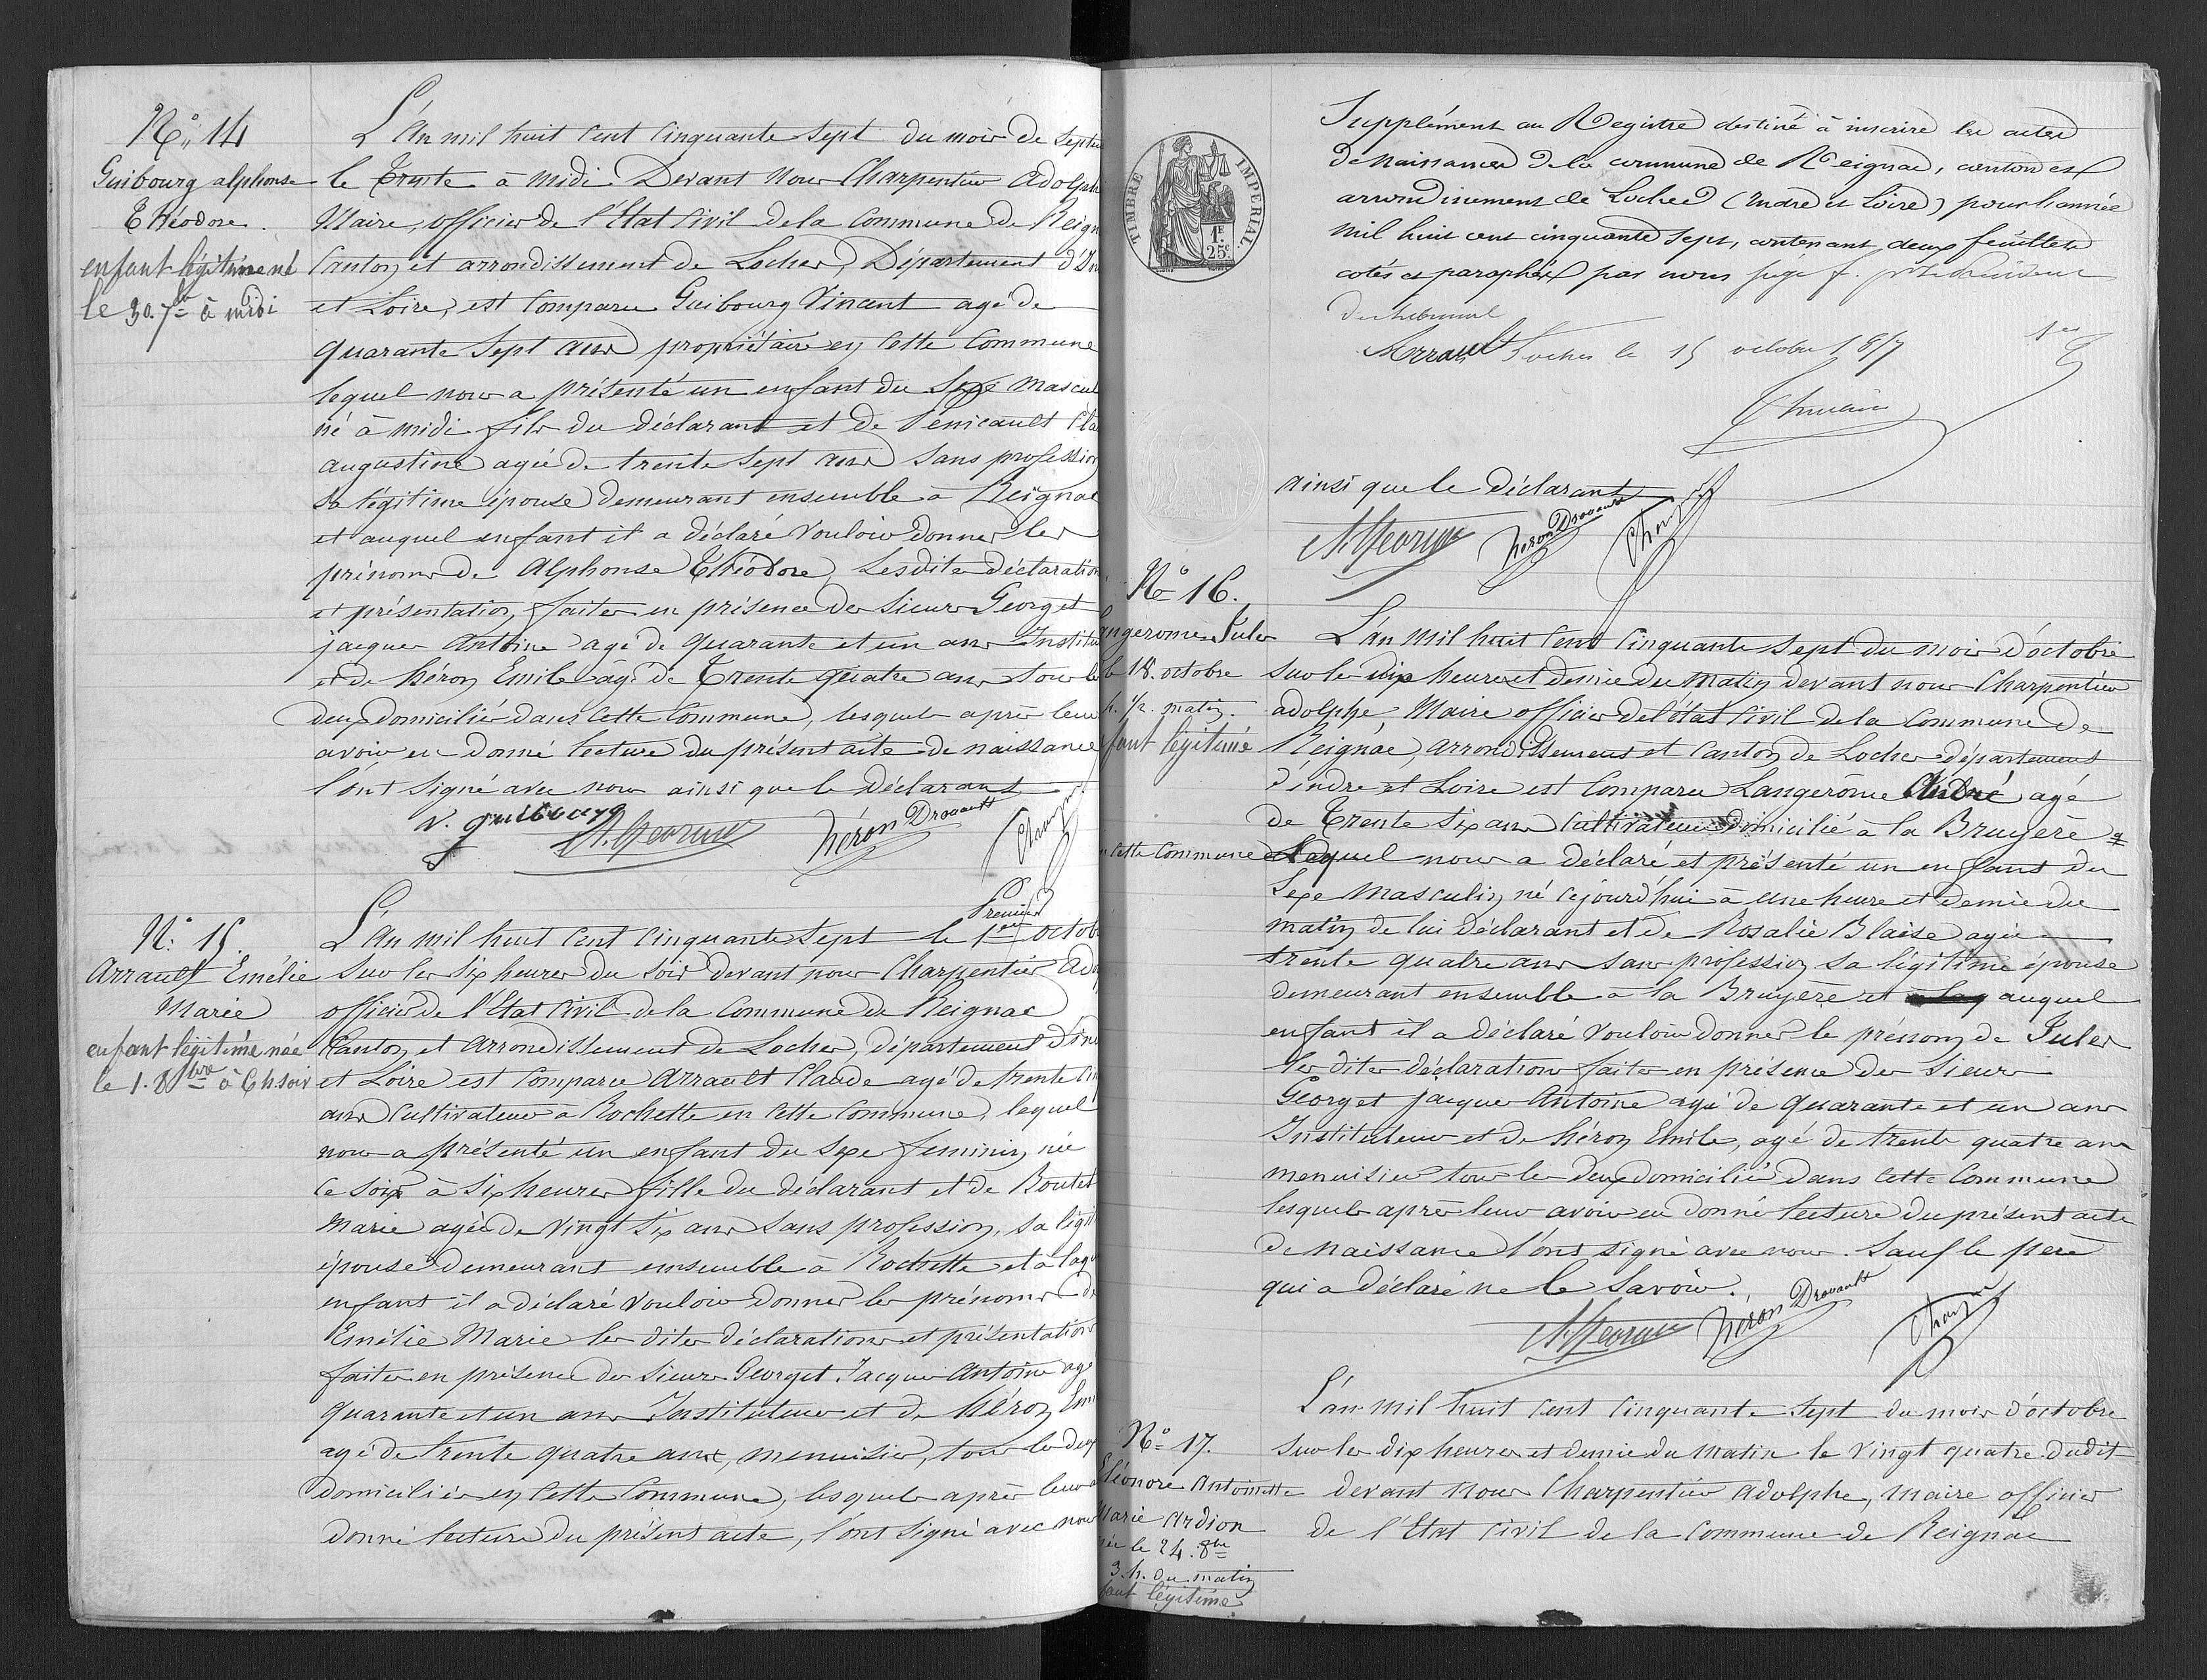 N° 14
Guibourg alphonse
Théodore.
enfant légitime né
le 30. 7bre à midi
L'An mil huit Cent Cinquante Sept du mois de Septem
le Trente à midi Devant Nous Charpentier Adolphe
Maire, officier de l'Etat Civil de la Commune de Reign
Canton et arrondissement de Loches, Département d'In
et Loire, est Comparu Guibourg Vincent agé de
quarante Sept ans propriétaire en Cette Commune
lequel nous a présenté un enfant du Sexe Mascul
né à midi fils du déclarant et de Pénicault
augustine agée de trente Sept ans Sans profession
Sa légitime épouse demeurant ensemble à Reignac
et auquel enfant il a déclaré Vouloir Donner les
prénoms de Alphonse Théodore, Lesdites déclaration
et présentation faites en présence des Sieurs Georget
jacques Antoine agé de quarante et un ans Institu
et de héron Emile agé de Trente quatre ans tous les
deux domiciliés dans Cette Commune, lesquels après leur
avoir eu donné lecture du présent acte de naissance
l'ont Signé avec nous ainsi que le Déclarant
V. guibourg
héron Drouault
N° 15.
Arrault Emélie
Marie
enfant légitime née
le 1. 8bre à 6 h. soir
Premier
L'An mil huit Cent Cinquante Sept le 1er octob
Sur les Six heures du Soir devant nous Charpentier Ado
officier de l'Etat Civil de la Commune de Reignac
Canton et Arrondissement de Loches, département d'In
et Loire est Comparu Arrault Claude agé de trente
ans Cultivateur à Rochette en Cette Commune, lequel
nous a présenté un enfant du Sexe feminin, née
Ce Soir à Six heures fille du déclarant et de Boutet
Marie agée de Vingt Six ans Sans profession, Sa légit
épouse demeurant ensemble à Rochette et à laqu
enfant il a déclaré Vouloir donner les prénoms de
Emélie Marie les dites déclarations et présentations
faites en présence des Sieurs Georget Jacques Antoine agé
quarante et un ans Instituteur et de héron Em
agé de trente quatre ans, menuisier, tous les deux
domiciliés en Cette Commune, lesquels après leur
donné lecture du présent acte, l'ont Signé avec nous
TIMBRE IMPERIAL.
1F 25c
Supplément au Registre destiné à inscrire les actes
de naissances de la commune de Reignac, canton et
arrondissement de Loches (Indre et Loire) pour l'année
mil huit cent cinquante sept, contenant deux feuillets
cotés et paraphés par nous juge
du tribunal
Loches le 15 octobre 1857
1er
ainsi que le Déclarant
héron Drouault
N° 16.
angerome Jules
le 18. octobre
h. 1/2. matin.
fant légitime
L'an Mil huit Cent Cinquante Sept du mois d'octobre
Sur les dix heures et demie du Matin devant nous Charpentier
adolphe, Maire officier de l'état Civil de la Commune de
Reignac, arrondissement et Canton de Loches département
d'indre et Loire est Comparu Langerôme André agé
de Trente Six ans Cultivateur domicilié à la Bruyère
en Cette Commune Lequel nous a déclaré et présenté un enfant du
Sexe Masculin né cejourd'hui à une heure et demie du
matin de lui déclarant et de Rosalie Blaise agée
trente quatre ans sans profession Sa légitime épouse
demeurant ensemble à la Bruyère et auquel
enfant il a déclaré Vouloir donner le prénom de Jules
les dites déclarations faites en présence des Sieurs
Georget jacques Antoine agé de quarante et un ans
Instituteur et de héron Emile, agé de trente quatre ans
menuisier tous les deux domiciliés dans Cette Commune
lesquels après leur avoir eu donné lecture du présent acte
de naissance l'ont signé avec nous. Sauf le père
qui a déclaré ne le Savoir.
héron Drouault
N° 17.
Eléonore Antoinette
Marie Ardion
née le 24. 8bre
3. h. du matin
fant légitime
L'an Mil huit cent Cinquante Sept du mois d'octobre
Sur les dix heures et demie du Matin le Vingt quatre dudit
devant Nous Charpentier Adolphe, maire officier
de l'Etat Civil de la Commune de Reignac